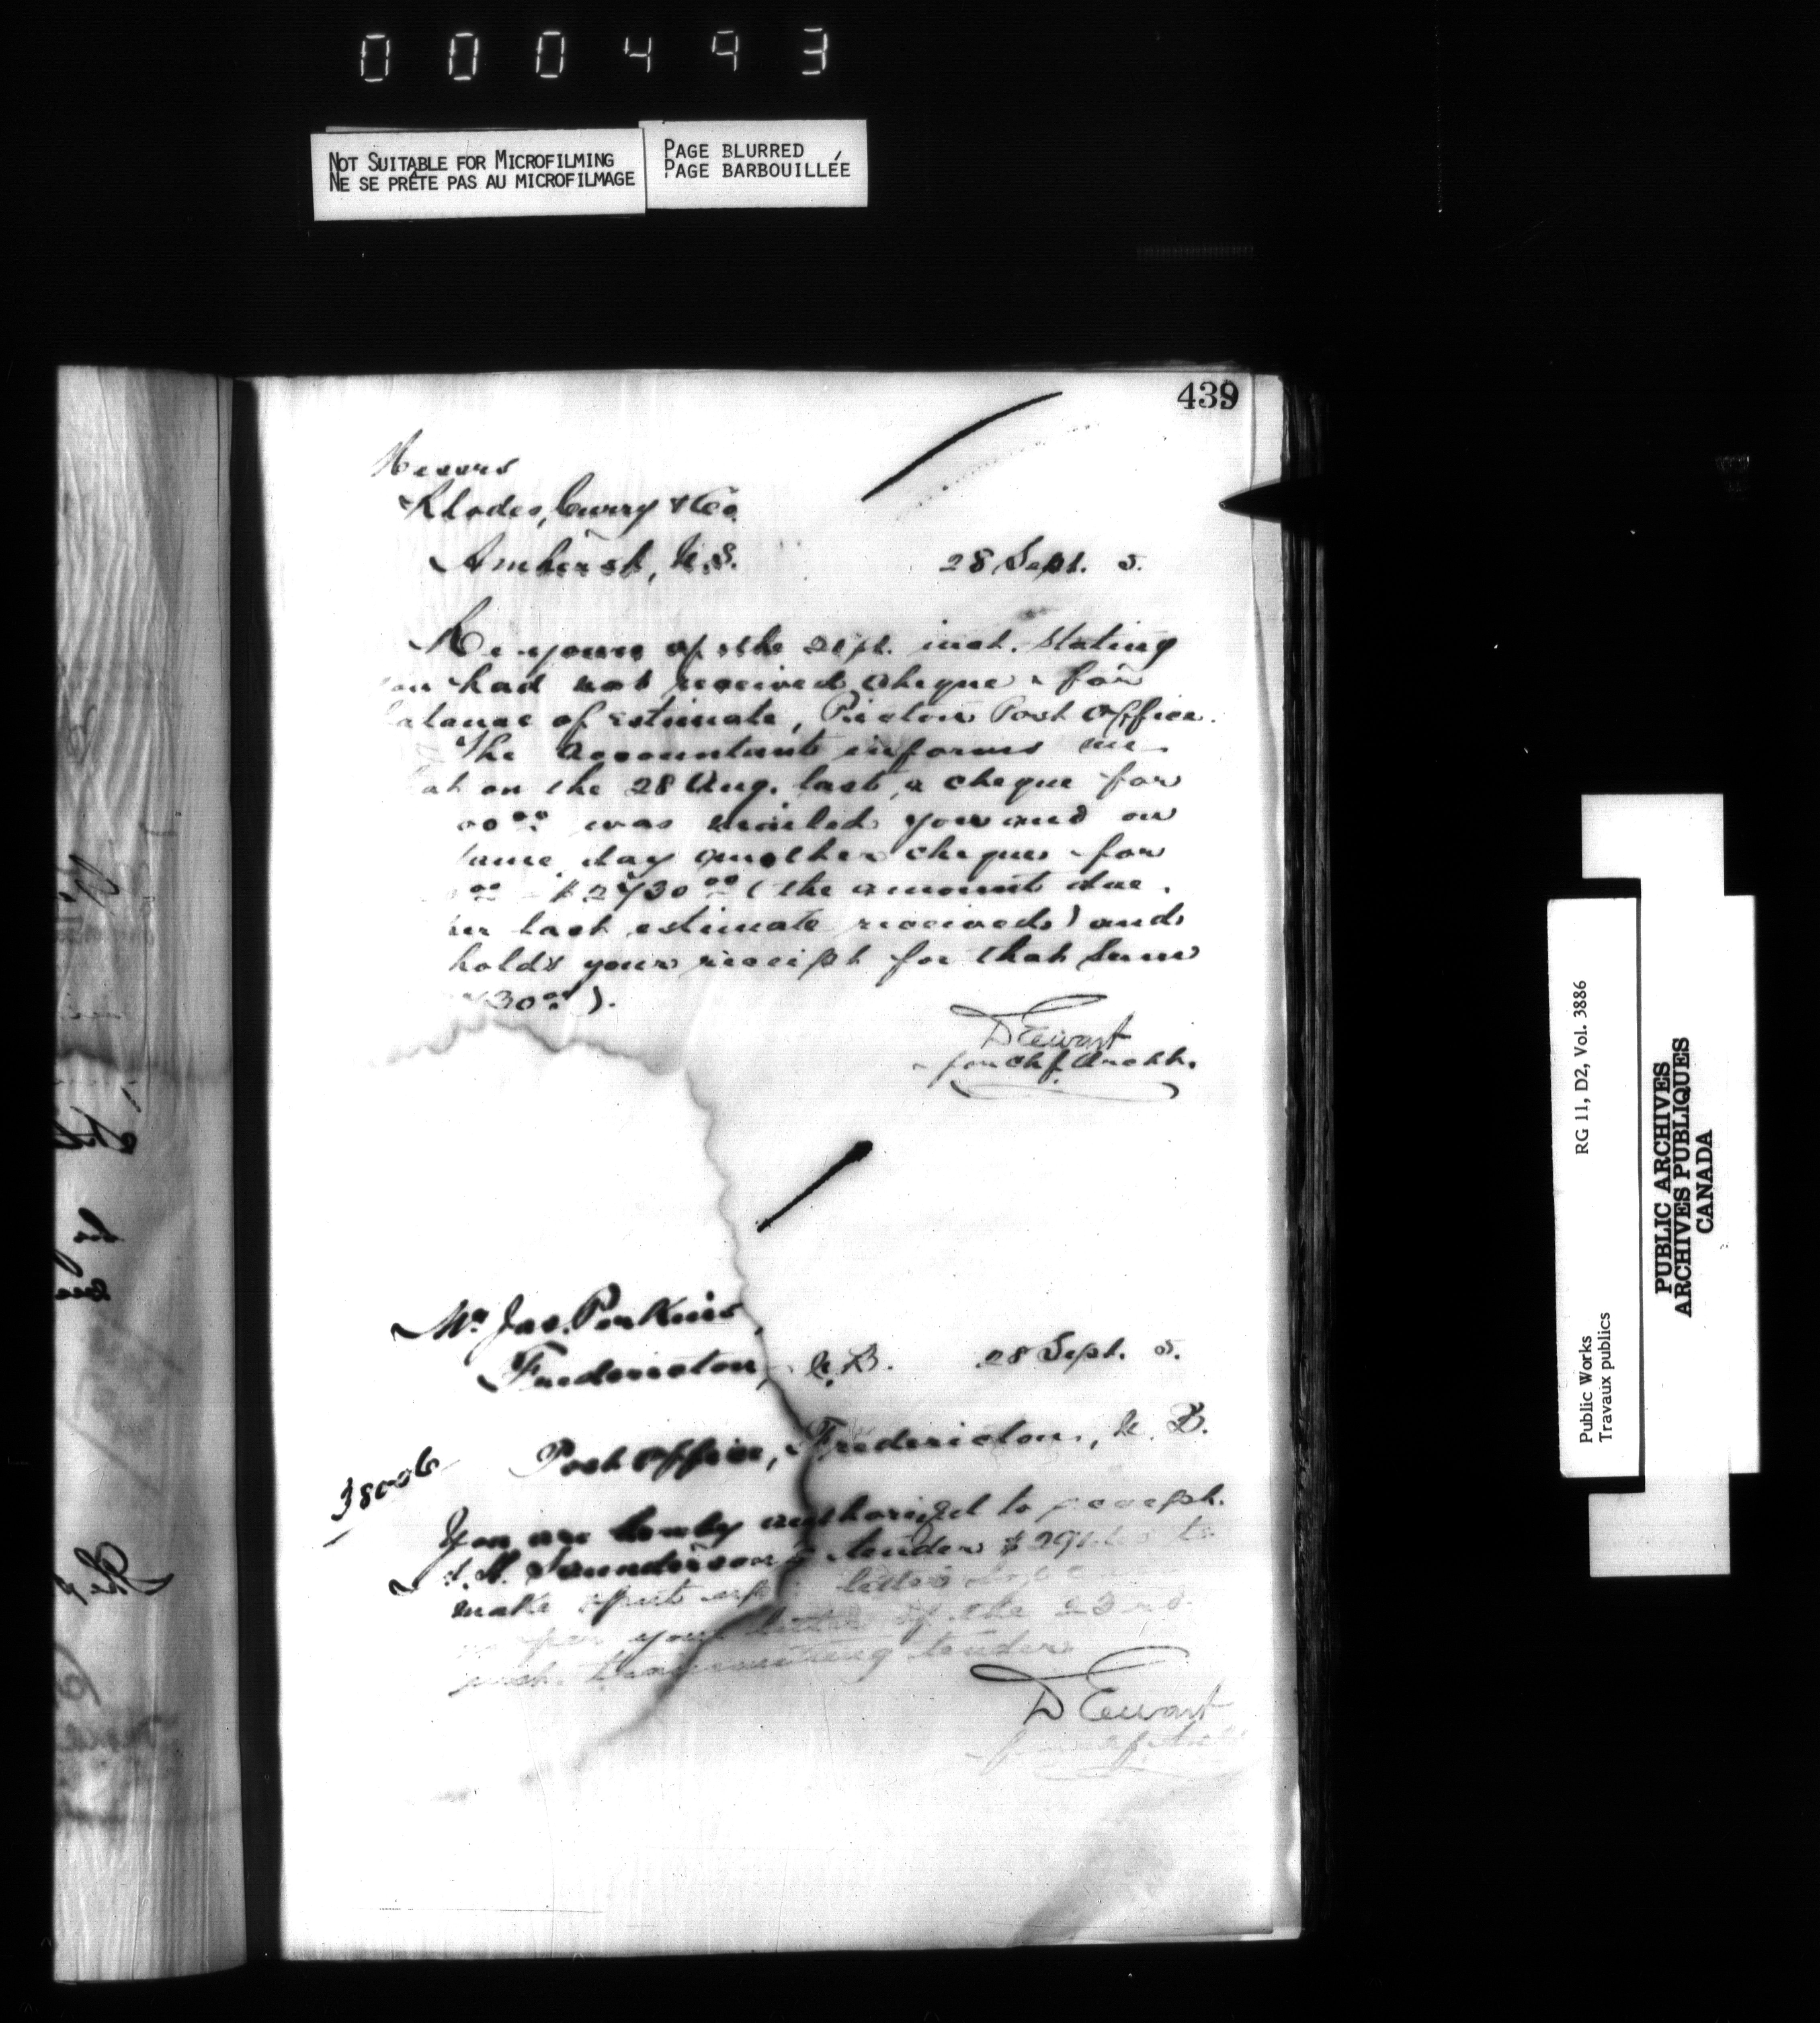 000493
NOT SUITABLE FOR MICROFILMING
NE SE PRÊTE PAS AU MICROFILMAGE
PAGE BLURRED
PAGE BARBOUILLÉE
439
Messrs
Rhodes, Curry & Co.
Amherst, N.S.
28 Sept. 5.
Re yours of the inst. stating
had not received cheque for
balance of estimate, Pictou Post Office.
The accountant informs me
on the 28 Aug. last, a cheque for
00 00 was mailed you and on
same day another cheque for
00 - $2730 00 (the amount due
last estimate received) and
holds your receipt for that sum
30 00).
D Ewart
for Chf. Archt.
Mr Jas. Perkins,
Fredericton, N.B. 28 Sept. 5.
Post Office, Fredericton, N.B.
38006
You are hereby authorized to accept
tender
make
your letter of the 23rd
inst. transmitting tender
D Ewart
RG 11, D2, Vol. 3886
Public Works
Travaux publics
PUBLIC ARCHIVES
ARCHIVES PUBLIQUES
CANADA